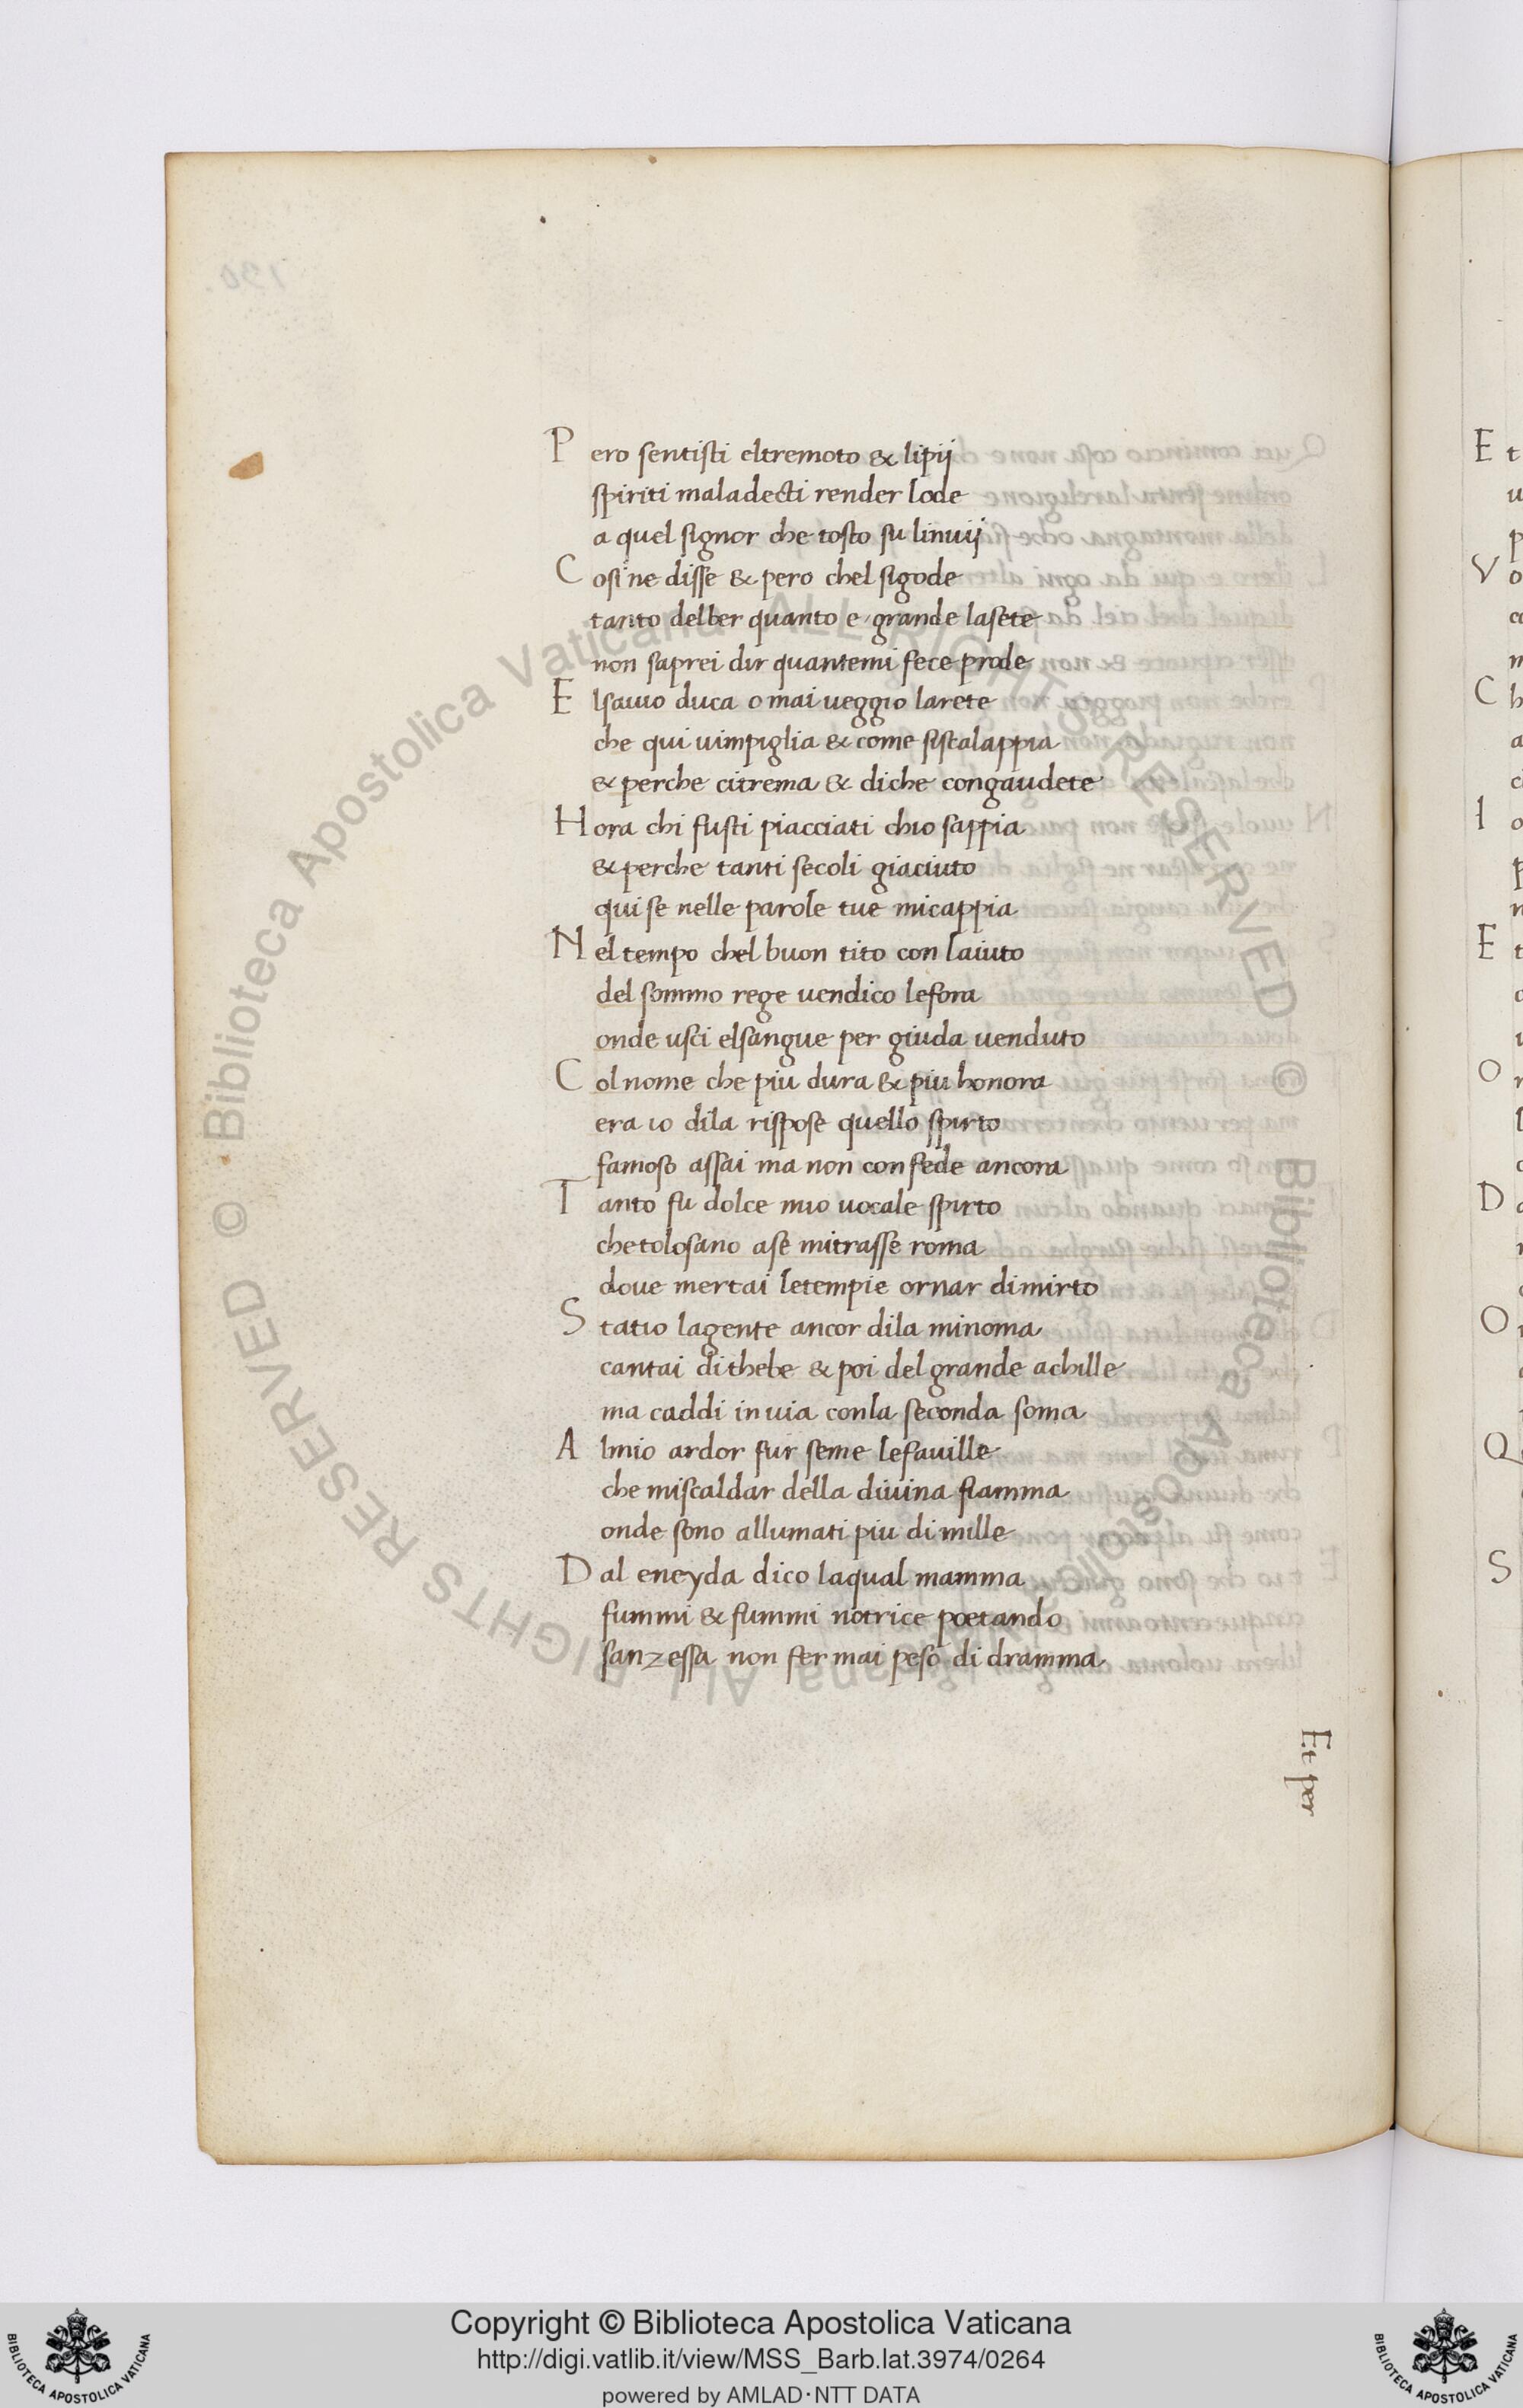 Pero sentisti eltremoto & lipij
spiriti maladecti render lode
a quel signor che tosto su linuij
Cosi ne disse & pero chel sigode
tanto delber quanto e grande lasete
non saprei dir quantemi fece prode
Elsauio duca o mai ueggio larete
che qui uimpiglia & come siscalappia
& perche citrema & diche congaudete
Hora chi fusti piacciati chio sappia
& perche tanti secoli giaciuto
qui se nelle parole tue micappia
Nel tempo chel buon tito con laiuto
del sommo rege uendico lefora
onde usci elsangue per giuda uenduto
Col nome che piu dura & piu honora
era io dila rispose quello spirto
famoso assai ma non con fede ancora
Tanto fu dolce mio uocale spirto
che tolosano ase mitrasse roma
doue mertai letempie ornar dimirto
Statio lagente ancor dila minoma
cantai dithebe & poi del grande achille
ma caddi in uia conla seconda soma
Almio ardor fur seme lefauille
che miscaldar della diuina fiamma
onde sono allumati piu di mille
Dal eneyda dico laqual mamma
fummi & fummi notrice poetando
sanzessa non fer mai peso di dramma
Et per
© Biblioteca Apostolica Vaticana ALL RIGHTS RESERVED © Biblioteca Apostolica Vaticana ALL RIGHTS RESERVED
Copyright © Biblioteca Apostolica Vaticana
http://digi.vatlib.it/view/MSS_Barb.lat.3974/0264
powered by AMLAD·NTT DATA
BIBLIOTECA APOSTOLICA VATICANA
BIBLIOTECA APOSTOLICA VATICANA